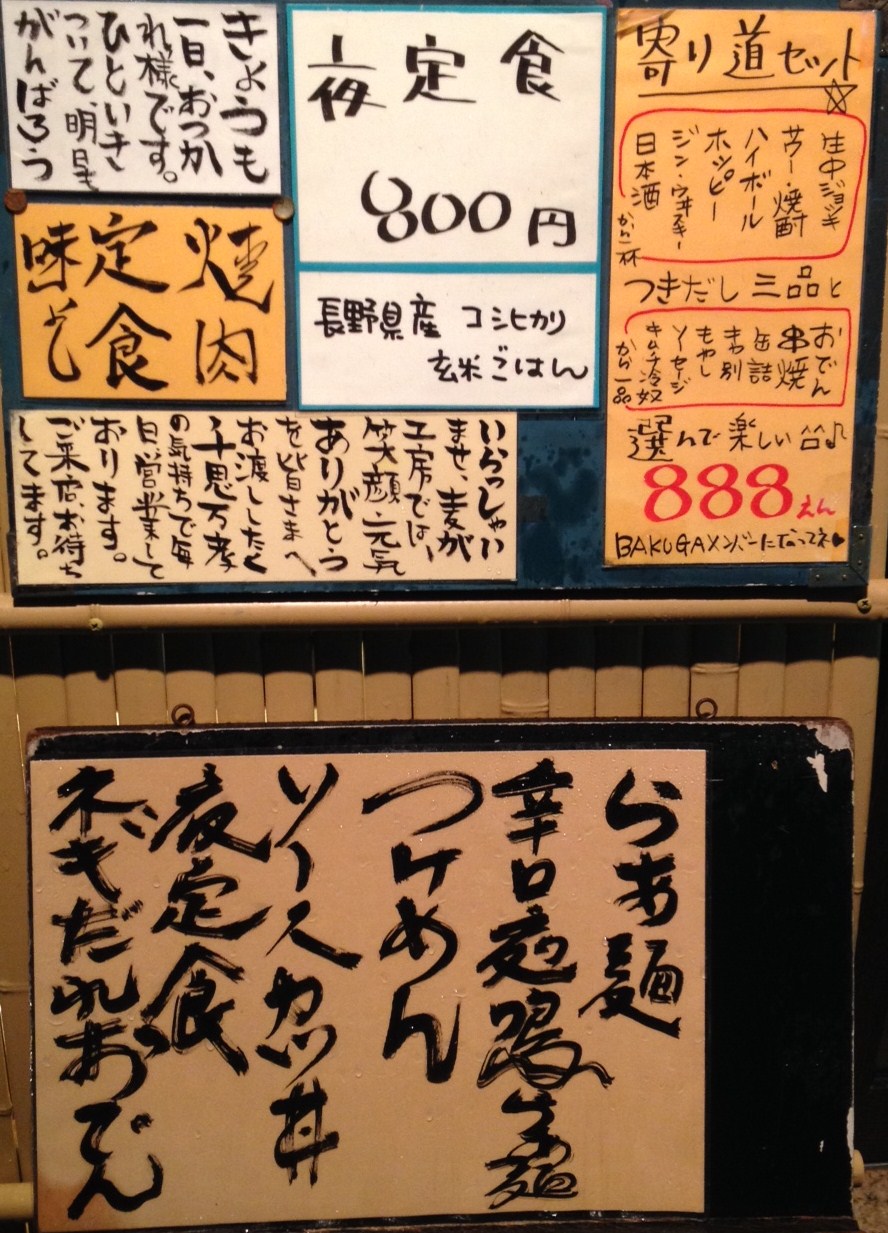 きょうも
一日、おつか
れ様です。
ひといき
ついて、明日も
がんばろう
夜定食
800円
長野県産 コシヒカリ
玄米ごはん
寄り道セット☆
生中ジョッキ
サワー・焼酎
ハイボール
ホッピー
ジン・ウヰスキー
日本酒
から一杯
つきだし三品と
おでん
串焼
缶詰
きゃ別
もやし
ソーセージ
キムチ冷奴
から一品
選んで楽しい
888えん
BAKUGAメンバーになってネ♥
焼肉
定食
味よし
いらっしゃい
ませ、麦が
工房では、
笑顔・元気
ありがとう
を皆さまへ
お渡ししたく
千思万考
の気持ちで毎
日営業して
おります。
ご来店、お待ち
してます。
らあ麺
辛口
つけめん
ソースカツ丼
夜定食
ネギだれおでん